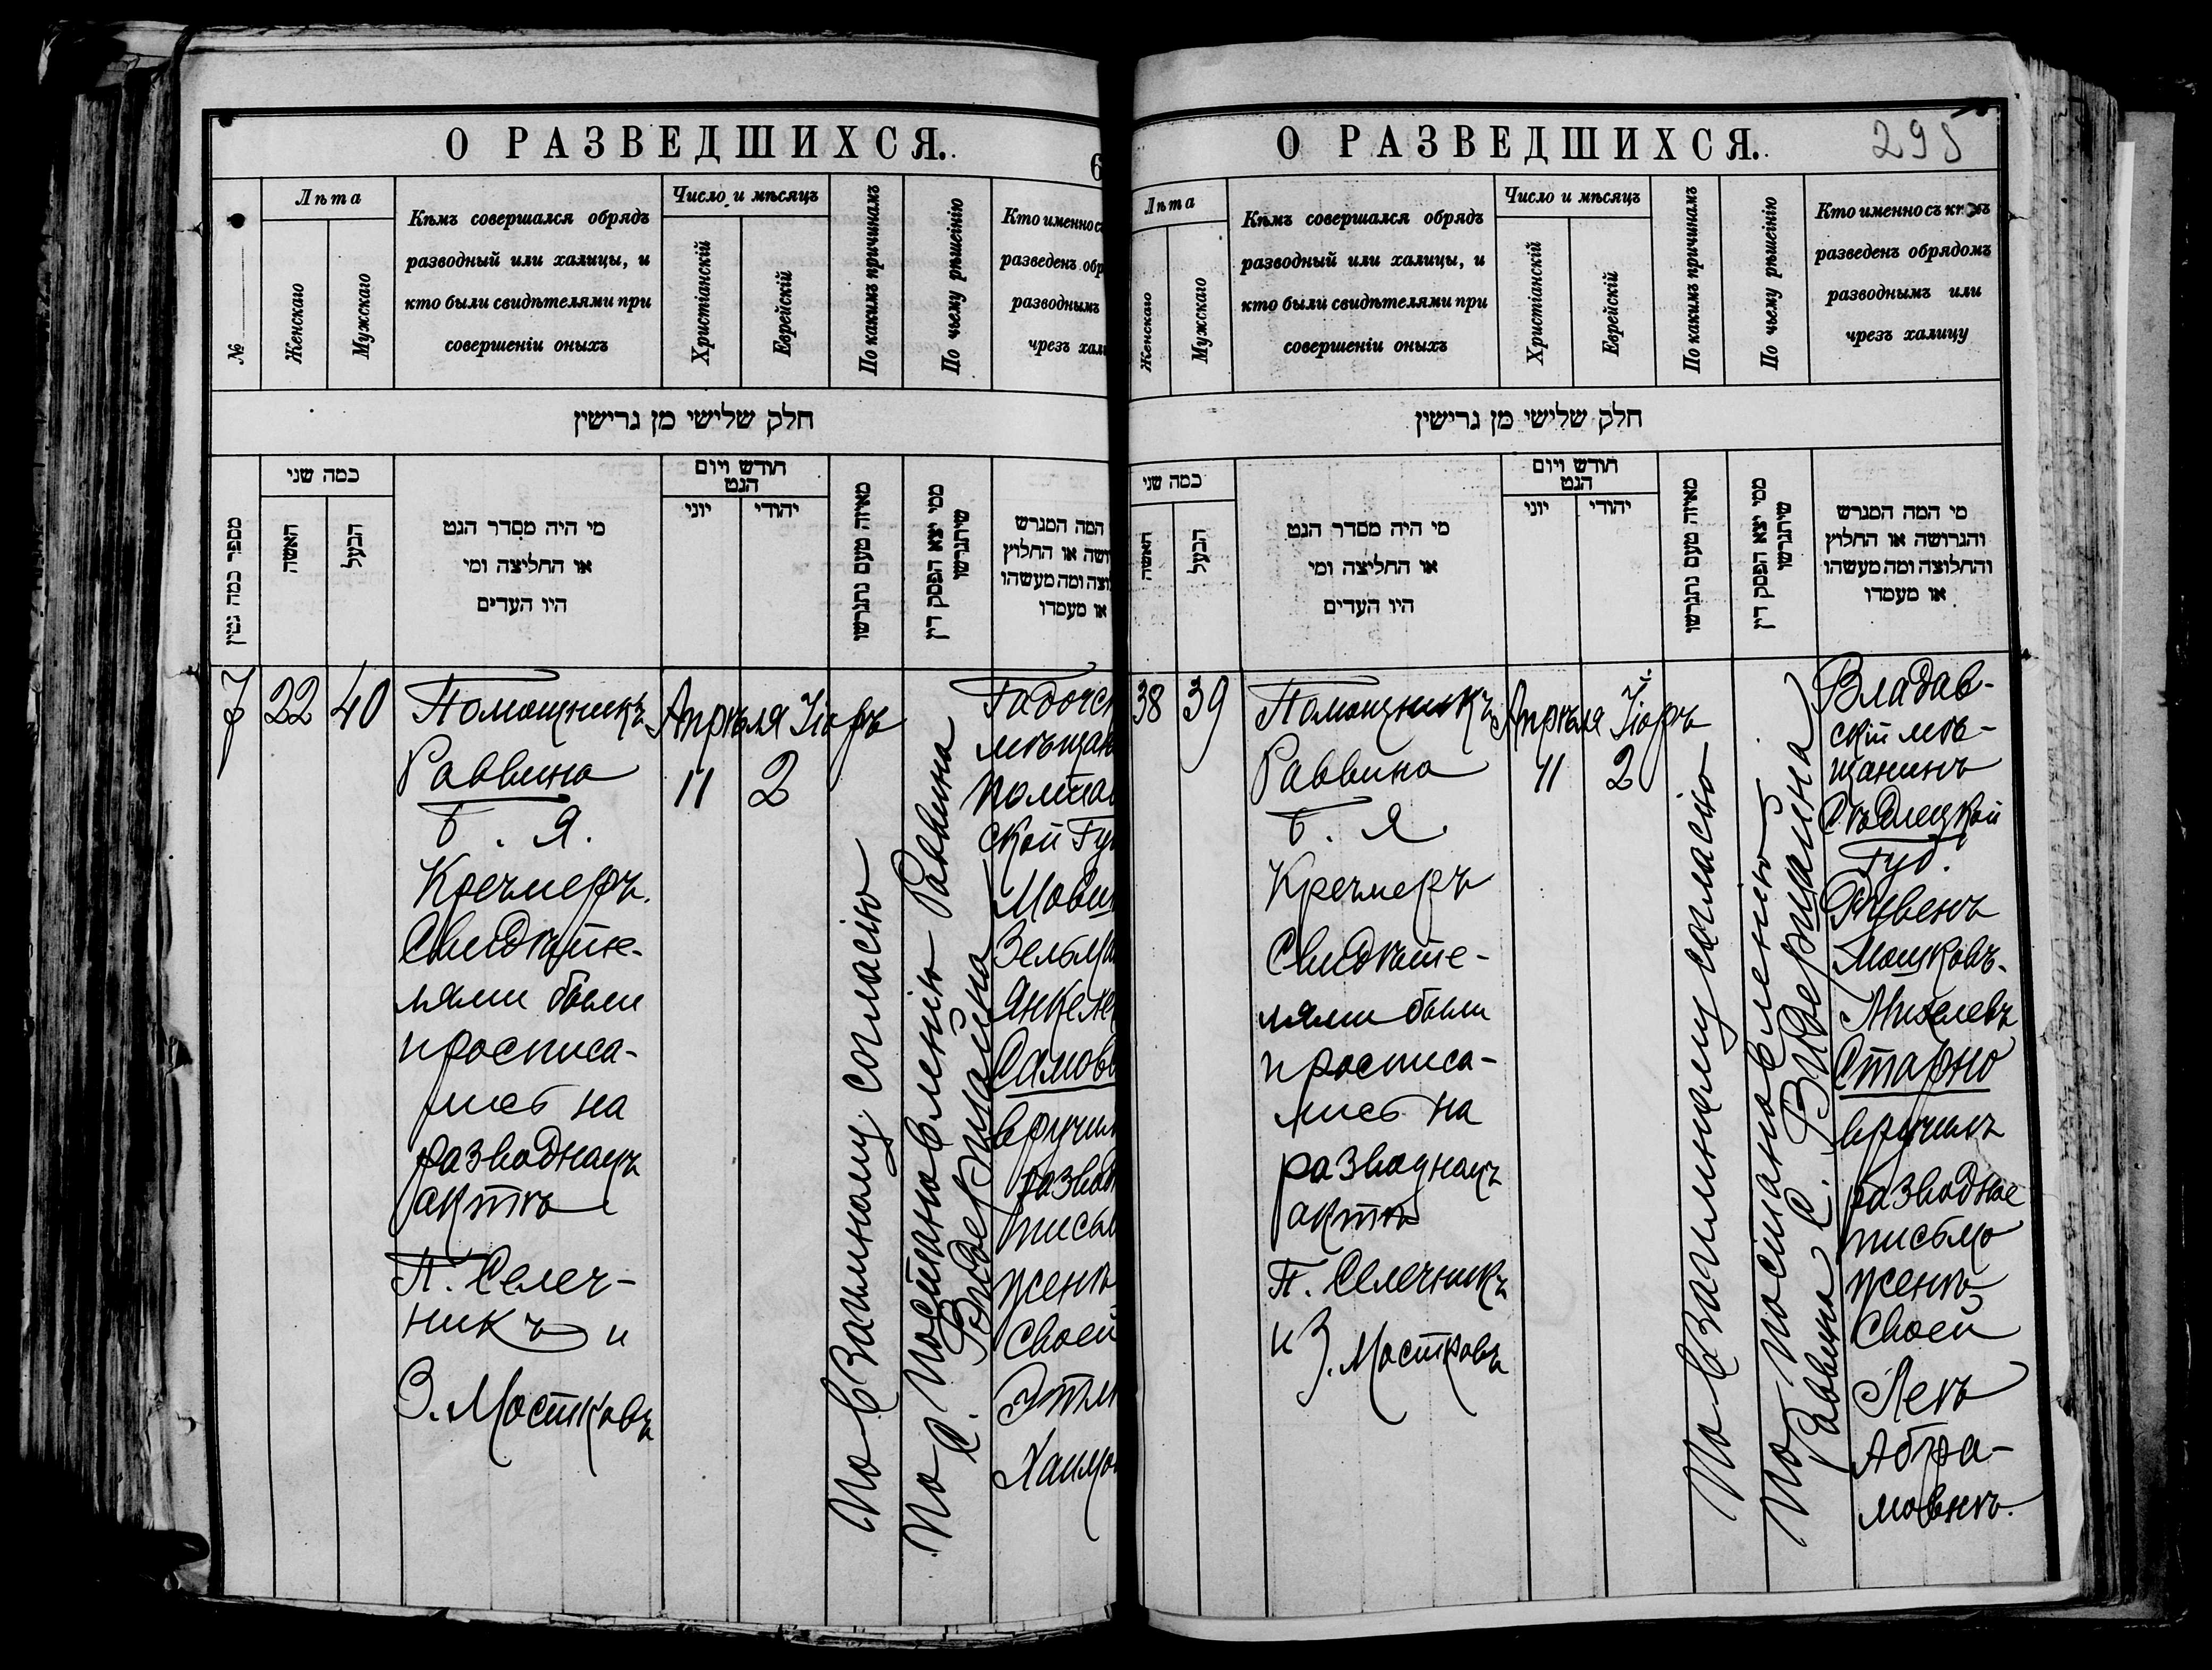 О РАЗВЕДШИХСЯ.
6
№
Лѣта
Женскаго
Мужскаго
Кѣмъ совершался обрядъ
разводный или халицы, и
кто были свидѣтелями при
совершеніи оныхъ
Число и мѣсяцъ
Христіанскій
Еврейскій
По какимъ причинамъ
По чьему рѣшенію
Кто именно съ
разведенъ обр
разводнымъ
чрезъ хали
חלק שלישי מן גרישין
מספר כמה גטין
כמה שני
האשה
הבעל
מי היה מסדר הגט
או החליצה ומי
היו העדים
חודש ויום
הגט
יוני
יהודי
מאיזה טעם נתגרשו
ממי יצא הפסק דין
שיתגרשו
המה המגרש
ושה או החלוץ
וצה ומה מעשהו
או מעמדו
7
22
40
Помощникъ
Раввина
Б. Я.
Кречмеръ.
Свидѣте-
лями были
и росписа-
лись на
разводномъ
актѣ
П. Селеч-
никъ и
З. Мостковъ
Апрѣля
11
Iіоръ
2
По взаимному согласію
По постановленію Раввина
С. Видерштайна
Гадячск
мѣщан
Полтав
ской Гу
Мови
Зельма
Янкеле
Само
вручил
развод
письм
женѣ
своей
Этл
Хаимо
О РАЗВЕДШИХСЯ.
295
Лѣта
Женскаго
Мужскаго
Кѣмъ совершался обрядъ
разводный или халицы, и
кто были свидѣтелями при
совершеніи оныхъ
Число и мѣсяцъ
Христіанскій
Еврейскій
По какимъ причинамъ
По чьему рѣшенію
Кто именно съ кѣмъ
разведенъ обрядомъ
разводнымъ или
чрезъ халицу
חלק שלישי מן גרישין
כמה שני
האשה
הבעל
מי היה מסדר הגט
או החליצה ומי
היו העדים
חודש ויום
הגט
יוני
יהודי
מאיזה טעם נתגרשו
ממי יצא הפסק דין
שיתגרשו
מי המה המגרש
והגרושה או החלוץ
והחלוצה ומה מעשהו
או מעמדו
38
39
Помощникъ
Раввина
Б. Я.
Кречмеръ
Свидѣте-
лями были
и росписа-
лись на
разводномъ
актѣ
П. Селечникъ
и З. Мостковъ
Апрѣля
11
Iіоръ
2
По взаимному согласію
По постановленію
Раввина С. Видерштайна
Владав-
скій мѣ-
щанинъ
Сѣдлецкой
Губ.
Рувенъ
Мошковъ-
Михелевъ
Старно
вручилъ
разводное
письмо
женѣ
своей
Леѣ
Абра-
мовнѣ.